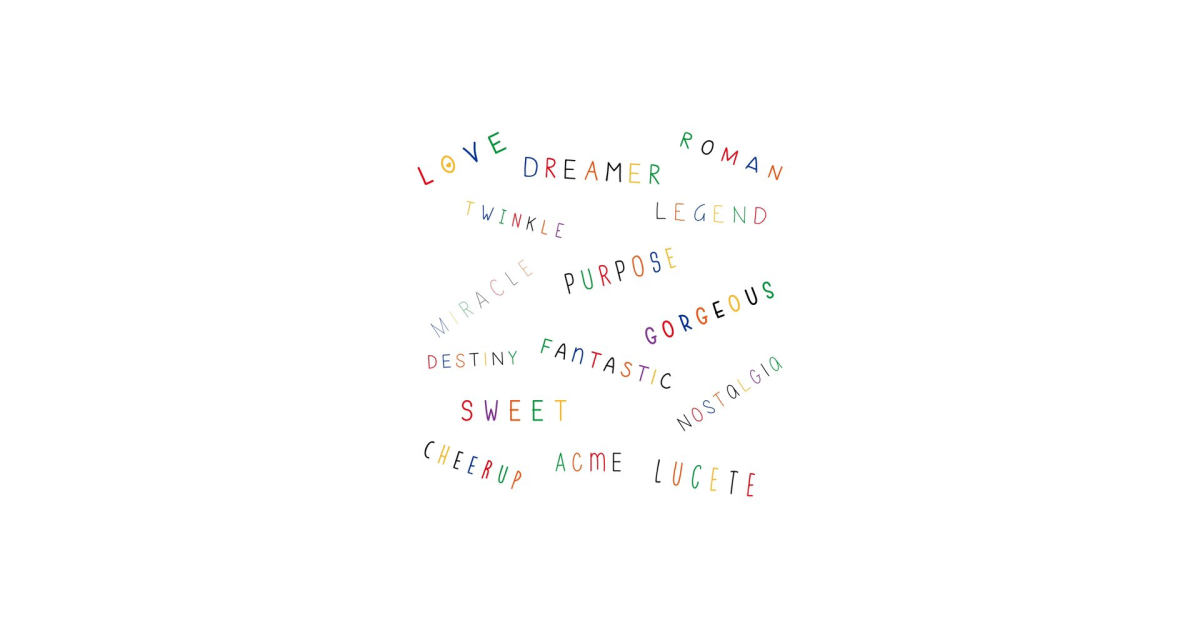 LOVE
DREAMER
ROMAN
TWINKLE
LEGEND
MIRACLE
PURPOSE
GORGEOUS
DESTINY
FANTASTIC
NOSTALGIA
SWEET
CHEERUP
ACME
LUCETE